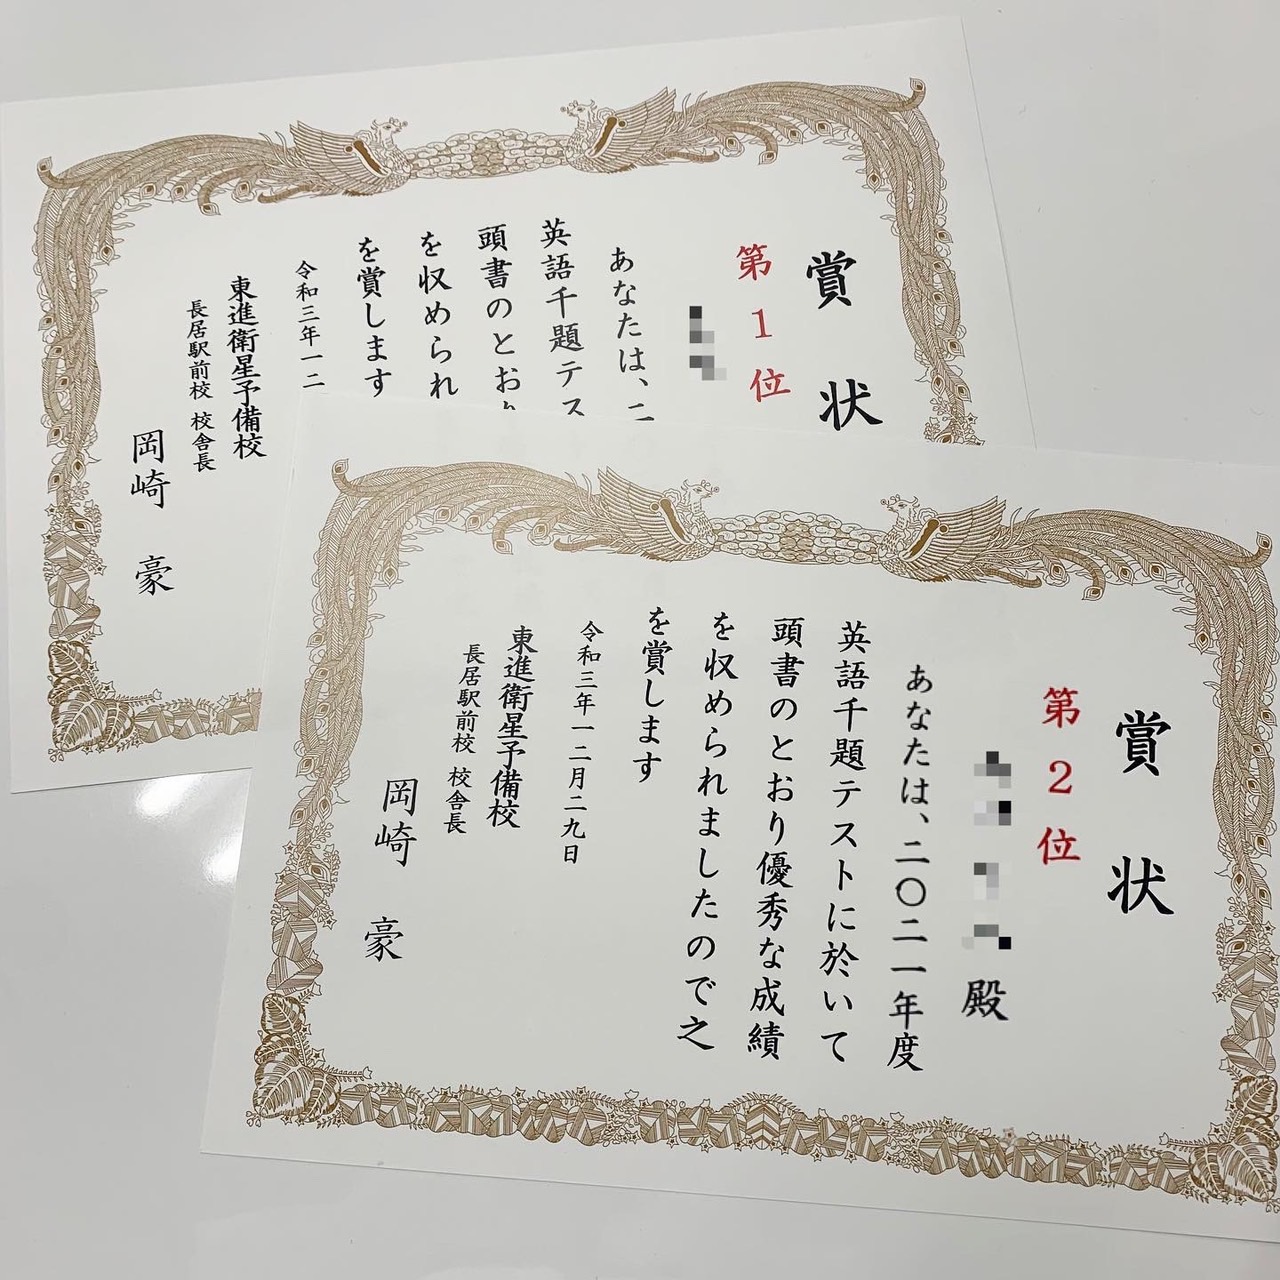 賞状
第1位
あなたは、二
英語千題テス
頭書のとおり
を収められ
を賞します
令和三年一二
東進衛星予備校
長居駅前校 校舎長
岡崎 豪
賞状
第2位
殿
あなたは、二〇二一年度
英語千題テストに於いて
頭書のとおり優秀な成績
を収められましたので之
を賞します
令和三年一二月二九日
東進衛星予備校
長居駅前校 校舎長
岡崎 豪